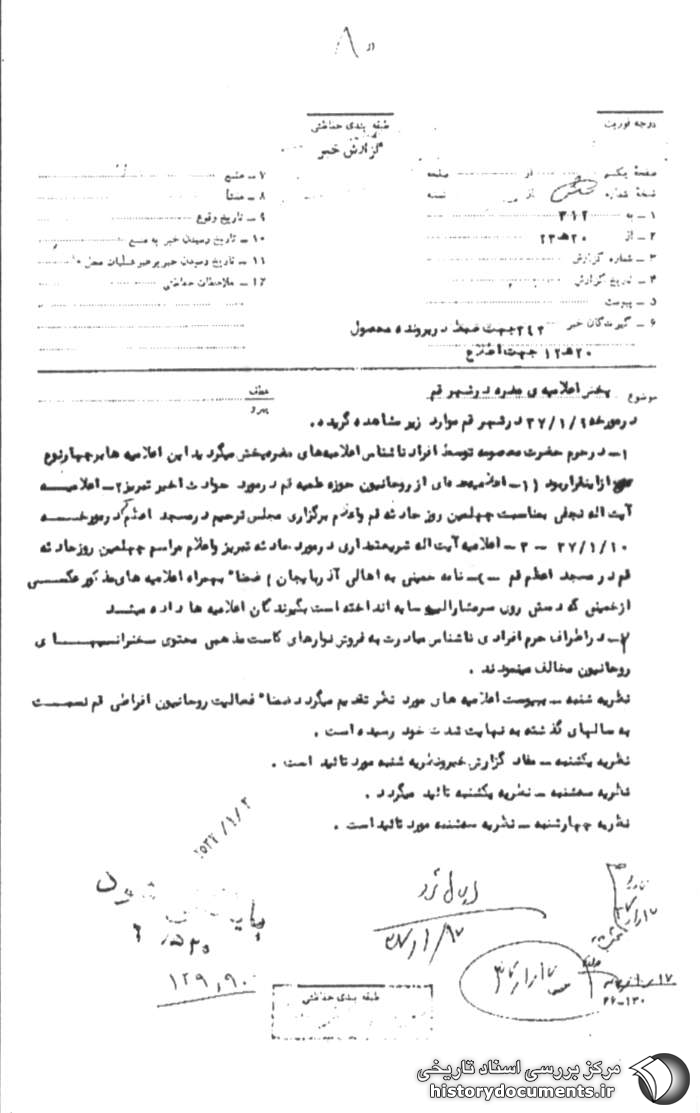 از ۸
درجه فوریت
طبقه بندی حفاظتی
گزارش خبر
صفحه یکم از صفحه
نسخه شماره از نسخه
۱ - به ۳۱۲
۲ - از ۲۰هـ۲۳
۳ - شماره گزارش
۴ - تاریخ گزارش
۵ - پیوست
۶ - گیرندگان خبر ۳۴۲ جهت ضبط در پرونده محصول
۲۰هـ۱۲ جهت اطلاع
۷ - منبع
۸ - منشأ
۹ - تاریخ وقوع
۱۰ - تاریخ رسیدن خبر به منبع
۱۱ - تاریخ رسیدن خبر برهبر عملیات محل
۱۲ - ملاحظات حفاظتی
موضوع پخش اعلامیه ی مضره در شهر قم
عطف
پیرو
در مورخه ۳۷/۱/۴ در شهر قم موارد زیر مشاهده گردید.
۱- در حرم حضرت معصومه توسط افراد ناشناس اعلامیه‌های مضره پخش میگردید این اعلامیه ها بر چهار نوع
از اینقرار بود (۱- اعلامیه‌ای از روحانیون حوزه علمیه قم در مورد حوادث اخیر تبریز ۲- اعلامیه
آیت اله نجفی بمناسبت چهلمین روز حادثه قم واعلام برگزاری مجلس ترحیم در مسجد اعظم در مورخه
۳۷/۱/۱۰ - ۳- اعلامیه آیت اله شریعتمداری در مورد حادثه تبریز واعلام مراسم چهلمین روز حادثه
قم در مسجد اعظم قم - ۴- نامه خمینی به اهالی آذربایجان) ضمنا" بهمراه اعلامیه های مذکور عکسی
از خمینی که دستش روی سر مشارالیه سایه انداخته است بگیرندگان اعلامیه ها داده میشد
۲- در اطراف حرم افرادی ناشناس مبادرت به فروش نوارهای کاست مذهبی محتوی سخنرانیهای
روحانیون مخالف مینمودند .
نظریه شنبه - بپیوست اعلامیه های مورد نظر تقدیم میگردد ضمنا" فعالیت روحانیون افراطی قم نسبت
به سالهای گذشته به نهایت شدت خود رسیده است .
نظریه یکشنبه - مفاد گزارش خبر ونظریه شنبه مورد تائید است .
نظریه سه‌شنبه - نظریه یکشنبه تائید میگردد .
نظریه چهارشنبه - نظریه سه‌شنبه مورد تائید است .
ارسال گردد
۱۲۹,۹۰
۲۶-۱۳۰
طبقه بندی حفاظتی
مرکز بررسی اسناد تاریخی
historydocuments.ir